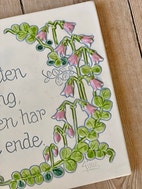 den
ng,
en har
ende